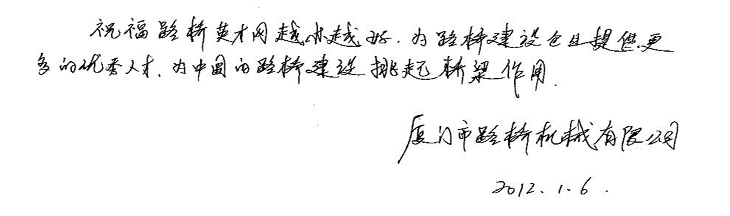 祝福路桥英才网越办越好.为路桥建设企业提供更
多的优秀人才,为中国的路桥建设挑起桥梁作用.
厦门市路桥机械有限公司
2012.1.6.